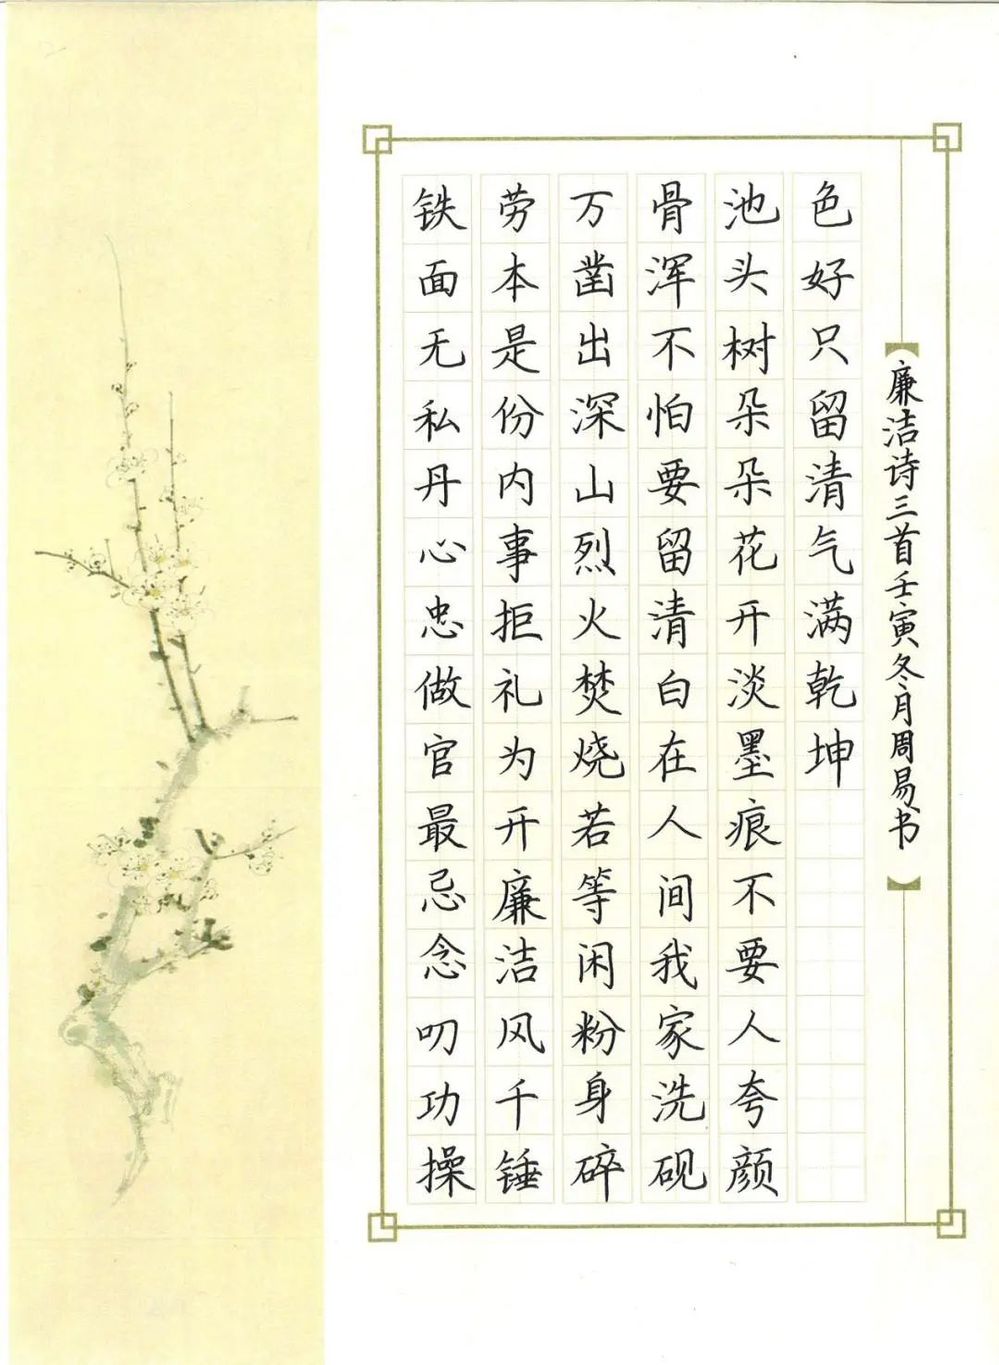 铁面无私丹心忠做官最忌念叨功操
劳本是份内事拒礼为开廉洁风千锤
万凿出深山烈火焚烧若等闲粉身碎
骨浑不怕要留清白在人间我家洗砚
池头树朵朵花开淡墨痕不要人夸颜
色好只留清气满乾坤
廉洁诗三首壬寅冬月周易书